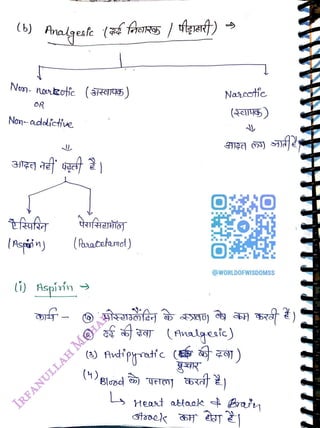 (b) Analgesic (दर्द निवारक / पीड़ाहारी) →
Non-narkotic (अस्वापक)
OR
Non-addictive
आदत नहीं पड़ती है।
Narcotic
(स्वापक)
आदत लग जाती है।
ऐस्पिरिन
(Aspirin)
पेरासिटामॉल
(Paracetamol)
@WORLDOFWISDOMSS
(i) Aspirin →
कार्य - प्रोस्टाग्लैंडिन के को कम करती है।
दर्द की दवा (Analgesic)
(3) Antipyratic (बुखार की दवा)
(4) Blood को पतला करती है।
↳ Heart attack & Brain
कम होता है।
IRFANULLAH